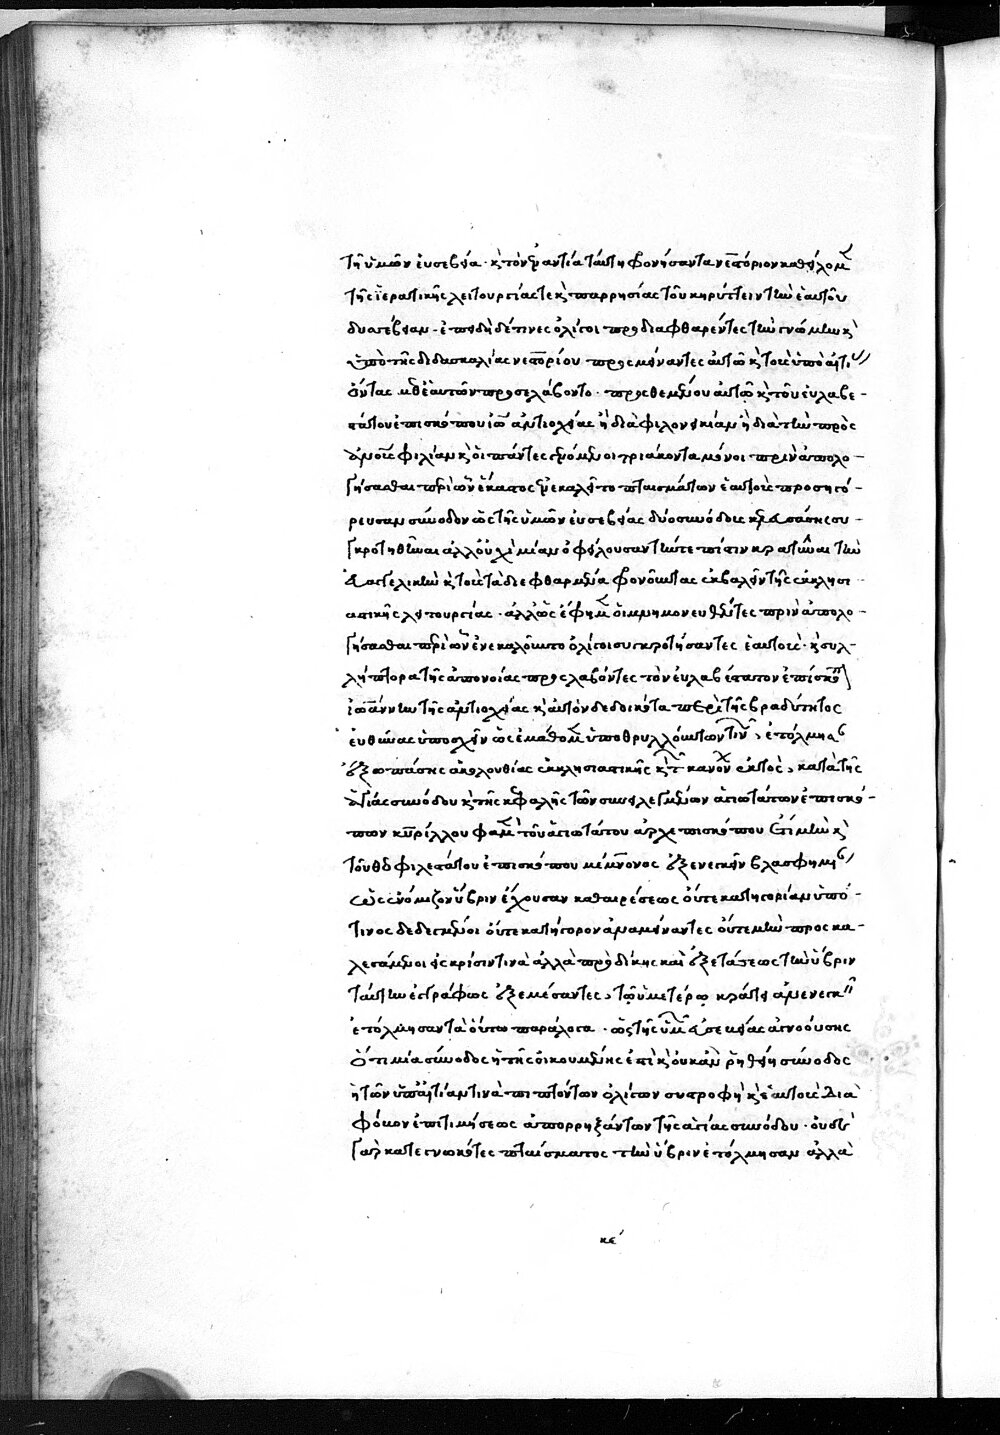 τῆ ὑμῶν εὐσεβεία · κ τὸν ἐναντία ταύτη φρονήσαντα νεστόριον καθείλομ
τῆς ἱερατικῆς λειτουργίας τε κ παρρησίας τοῦ κηρύττειν τὴν ἑαυτοῦ
δυσσέβειαν · ἐπειδὴ δέ τινες ὀλίγοι προδιαφθαρέντες τὴν γνώμην κ
ὑπὸ τῆς διδασκαλίας νεστορίου προσμείναντες αὐτῶ κ τοὺς ὑπὸ αἰτί
ὄντας μεθ' ἑαυτῶν προσελάβοντο · προσθεμένου αὐτῶ κ τοῦ εὐλαβε-
στάτου ἐπισκόπου ἰω ἀντιοχείας ἢ διὰ φιλονεικίαν ἢ διὰ τὴν πρὸς
ἀμοις φιλίαν κ οἱ πάντες γενόμενοι τριάκοντα μόνοι πρὶν ἀπολο-
γήσασθαι περὶ ὧν ἕκαστος ἐνεκαλεῖτο πταισμάτων ἑαυτοὺς προσηγό-
ρευσαν σύνοδον ὡς τῆς ὑμῶν εὐσεβείας δύο συνόδους κελευσάσης συ-
γκροτηθῆναι ἀλλ' οὐχὶ μίαν ὀφείλουσαν τήν τε πίστιν κρατῦναι τὴν
εὐαγγελικὴν κ τοὺς τὰ διεφθαρμένα φρονοῦντας ἐκβαλεῖν τῆς ἐκκλησι
αστικῆς λειτουργίας · ἀλλ' ὡς ἔφημ οἱ μνημονευθέντες πρὶν ἀπολο-
γήσασθαι περὶ ὧν ἐνεκαλοῦντο ὀλίγοι συγκροτήσαντες ἑαυτοὺς · κ συλ-
λήπτορα τῆς ἀπονοίας προσλαβόντες τὸν εὐλαβέστατον ἐπίσκο
ἰωάννην τῆς ἀντιοχείας κ αὐτὸν δεδοικότα περὶ τῆς βραδύτητος
εὐθύνας ὑποσχεῖν ὡς ἐμάθομ ὑποθρυλλούντων τιν, ἐτόλμησ
ἔξω πάσης ἀκολουθίας ἐκκλησιαστικῆς κ τ κανόν ἐκτὸς, κατὰ τῆς
ἁγίας συνόδου κ τῆς κεφαλῆς τῶν συνειλεγμένων ἁγιωτάτων ἐπισκό-
πων κυρίλλου φαμ τοῦ ἁγιωτάτου ἀρχιεπισκόπου ἔτι μὴν κ
τοῦ θεοφιλεστάτου ἐπισκόπου μέμνονος ἐξενεγκεῖν βλασφημ
ὡς ἐνόμιζον ὕβριν ἔχουσαν καθαιρέσεως οὔτε κατηγορίαν ὑπό-
τινος δεδεγμένοι οὔτε κατήγορον ἀναμείναντες οὔτε μὴν προσκα-
λεσάμενοι εἰς κρίσιν τινὰ ἀλλὰ πρὸ δίκης καὶ ἐξετάσεως τὴν ὕβριν
ταύτην ἐγγράφως ἐξεμέσαντες, τῶ ὑμετέρω κράτει ἀνενεγκ
ἐτόλμησαν τὰ οὕτω παράλογα · ὡς τῆς ὑμ εὐσεβείας ἀγνοούσης
ὅτι μία σύνοδος ἡ τῆς οἰκουμένης ἐστὶ κ οὐκ ἂν ῥηθείη σύνοδος
ἡ τῶν ὑπ' αἰτίαν τινὰ πιπτόντων ὀλίγων συστροφὴ κ ἑαυτοὺς διὰ
φόβον ἐπιτιμήσεως ἀπορρηξάντων τῆς ἁγίας συνόδου · οὐδὲ
γὰρ κατεγνωκότες πταίσματος τὴν ὕβριν ἐτόλμησαν ἀλλὰ
κε'